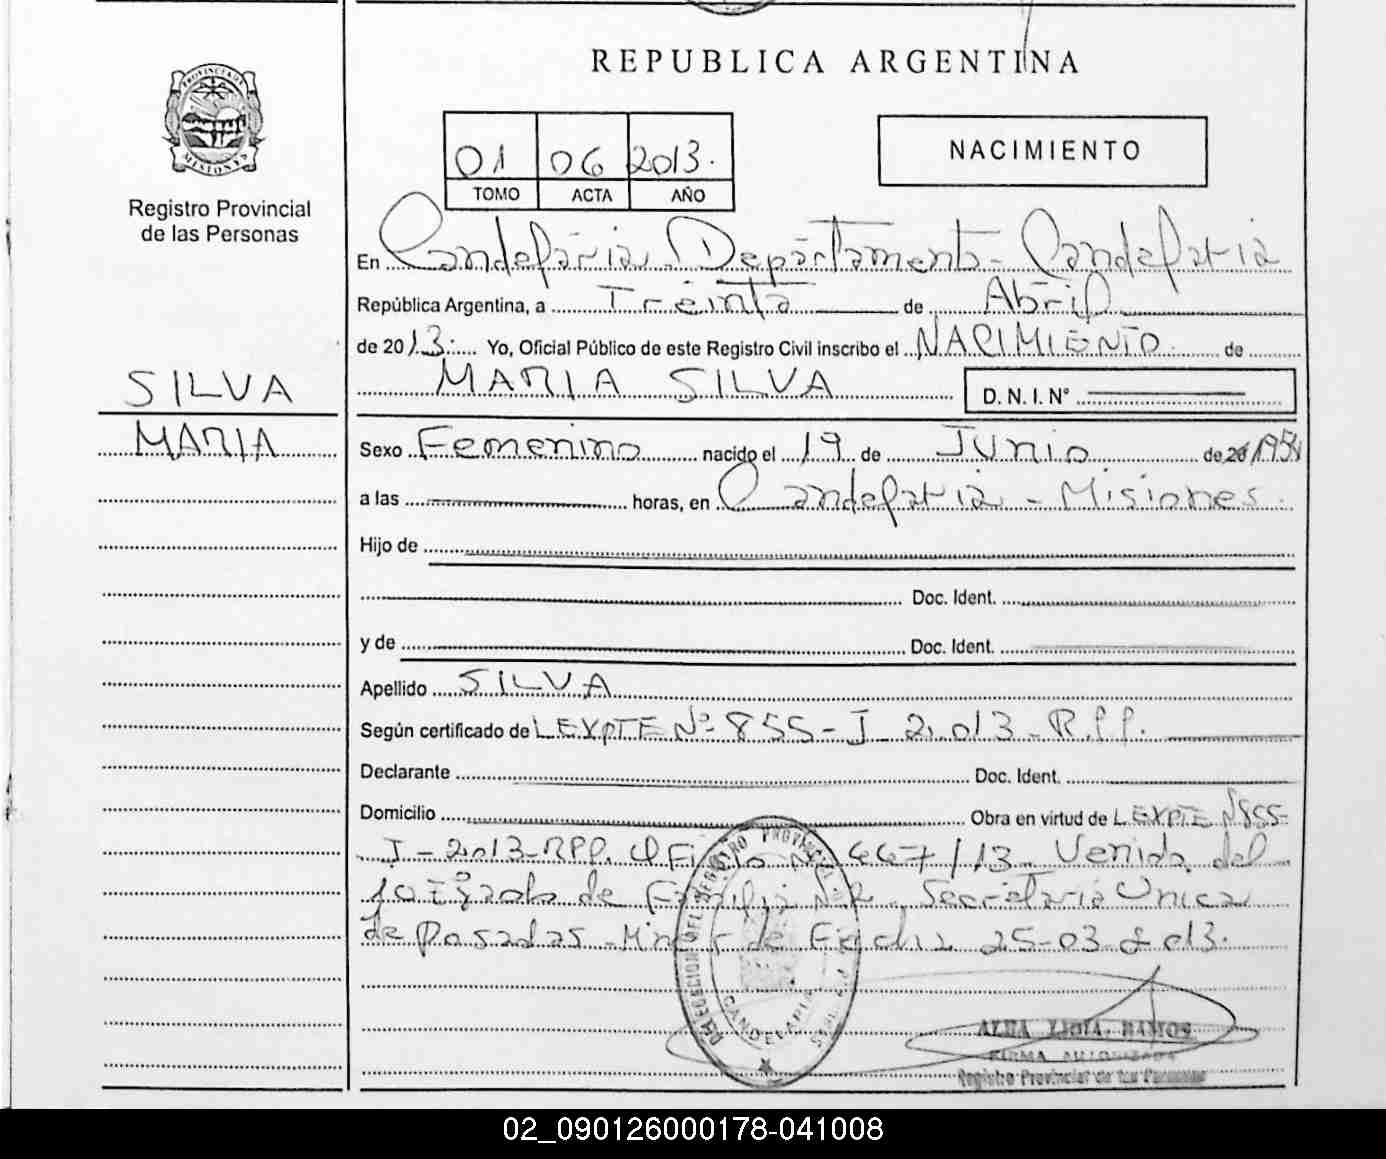 REPUBLICA ARGENTINA
PROVINCIA DE
MISIONES
Registro Provincial
de las Personas
01 06 2013.
TOMO ACTA AÑO
NACIMIENTO
En Candelaria Departamento - Candelaria
República Argentina, a Treinta de Abril
de 2013. Yo, Oficial Público de este Registro Civil inscribo el NACIMIENTO de
MARIA SILVA D. N. I. N°
SILVA
MARIA
Sexo Femenino nacido el 19 de Junio de 20
a las horas, en Candelaria - Misiones.
Hijo de
Doc. Ident.
y de Doc. Ident.
Apellido SILVA
Según certificado de L EXPTE Nº 855-J 2013 - R.P.P.
Declarante Doc. Ident.
Domicilio Obra en virtud de L EXPTE Nº 855-
J-2013-RPP. Oficio Nº 667/13 Venido del
Juzgado de Familia Nº 2. Secretaria Unica
de Posadas - de Fecha 25-03 2013.
DELEGACION DEL REGISTRO PROVINCIAL
CANDELARIA
RAMOS
FIRMA AUTORIZADA
Registro Provincial de las Personas
02_090126000178-041008